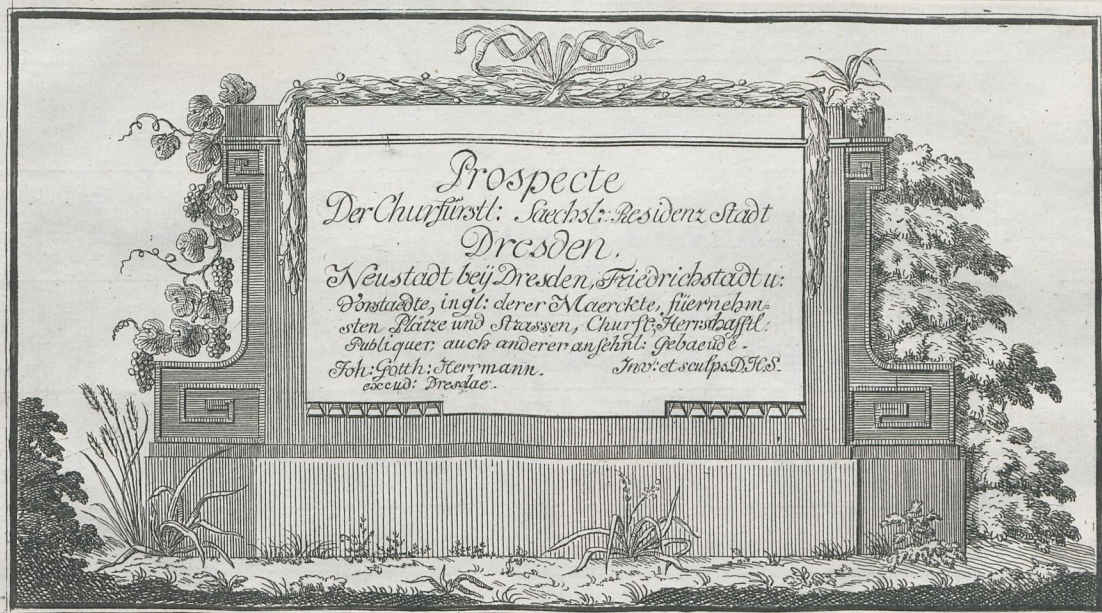 Prospecte
Der Churfürstl: Saechsl: Residenz Stadt
Dresden.
Neustadt beÿ Dresden, Friedrichstadt u:
Vorstaedte, ingl: derer Maerckte, füernehm=
sten Plätze und Strassen, Churft. Herrschafftl:
Publiquer, auch anderer ansehnl: Gebaeude.
Joh: Gotth: Herrmann. Inv: et sculps. D.H.S.
excud: Dresdae.